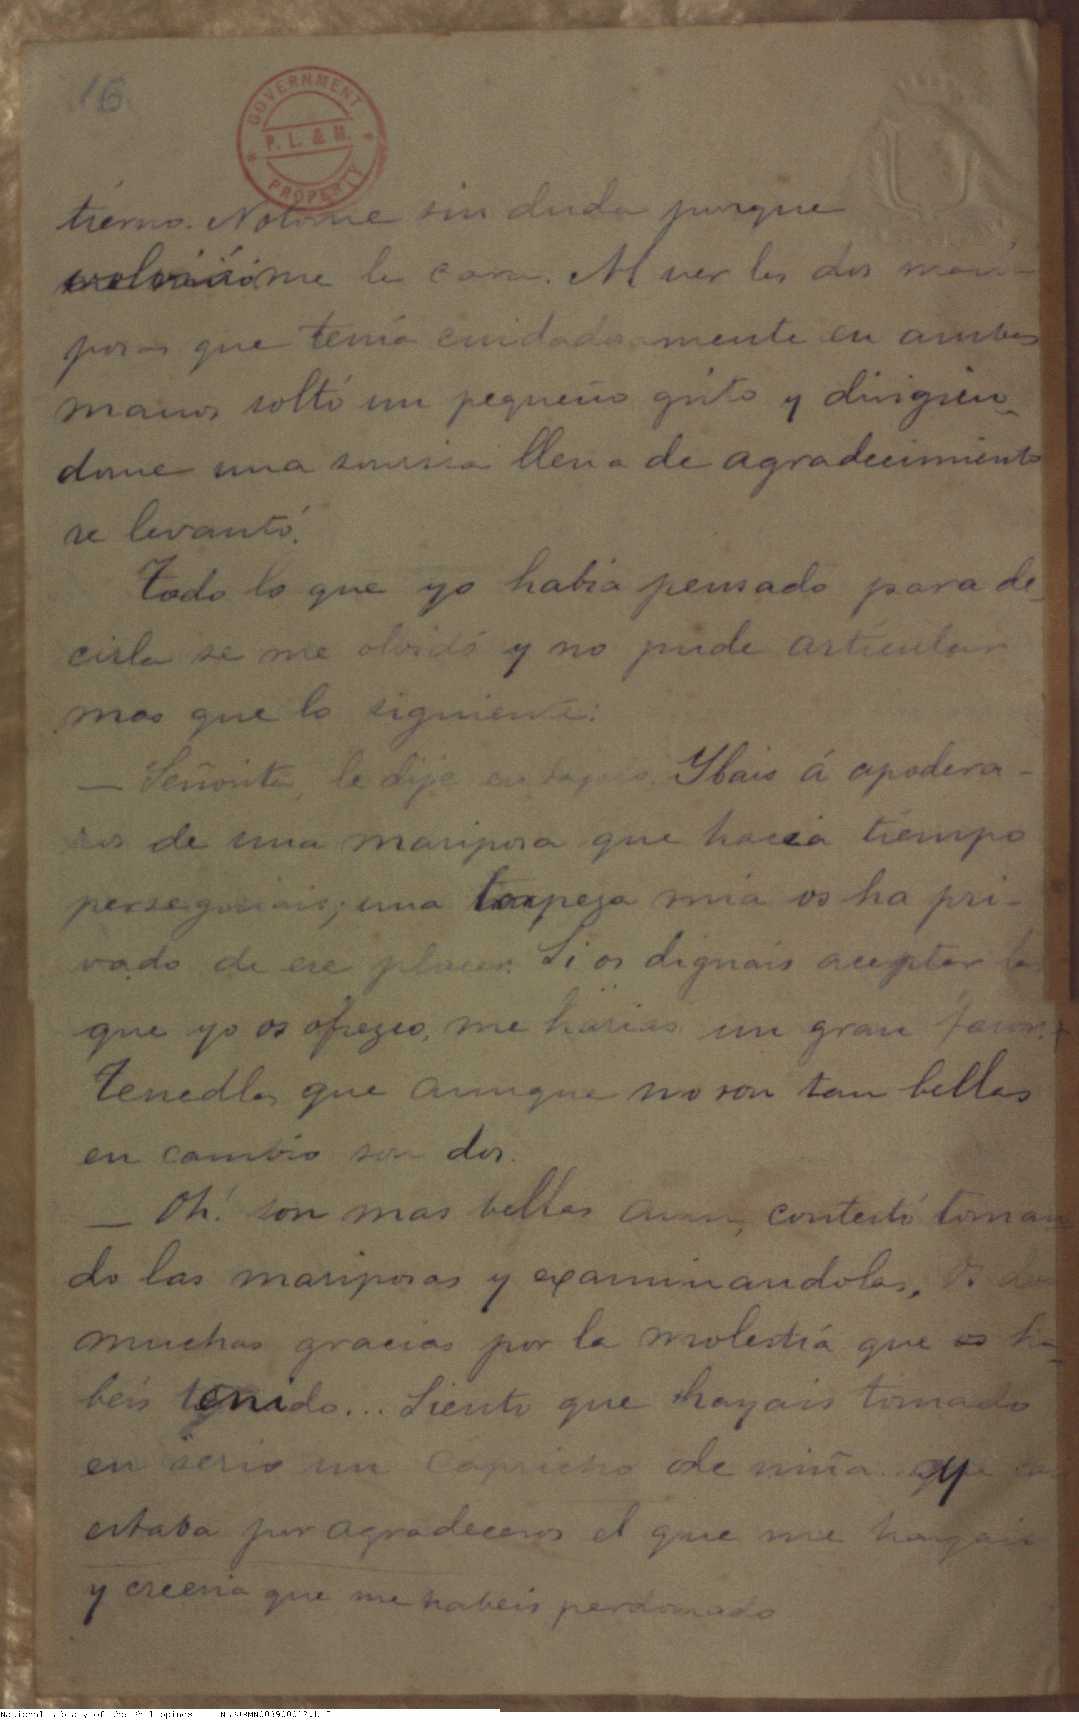 16
GOVERNMENT
P. L. & M.
PROPERTY
tierno. Notóme sin duda porque
me la cara. Al ver las dos mari-
posas que tenía cuidadosamente en ambas
manos soltó un pequeño grito y dirigien-
dome una sonrisa llena de agradecimiento
se levantó.
Todo lo que yo habia pensado para de-
cirla se me olvidó y no pude articular
mas que lo siguiente:
— Señorita, le dije en Ybais á apodera-
ros de una mariposa que hacia tiempo
perseguiais; una torpeza mia os ha pri-
vado de ese placer. Si os dignais aceptar las
que yo os ofrezco, me hariais un gran favor.
Tenedlas que aunque no son tan bellas
en cambio son dos.
— Oh! son mas bellas aun, contestó toman
do las mariposas y examinandolas, Os doy
muchas gracias por la molestia que os ha-
beis tenido... Siento que hayais tomado
en serio un capricho de niña. y
estaba por agradeceros el que me hayais
y creeria que me habeis perdonado
National Library of the Philippines